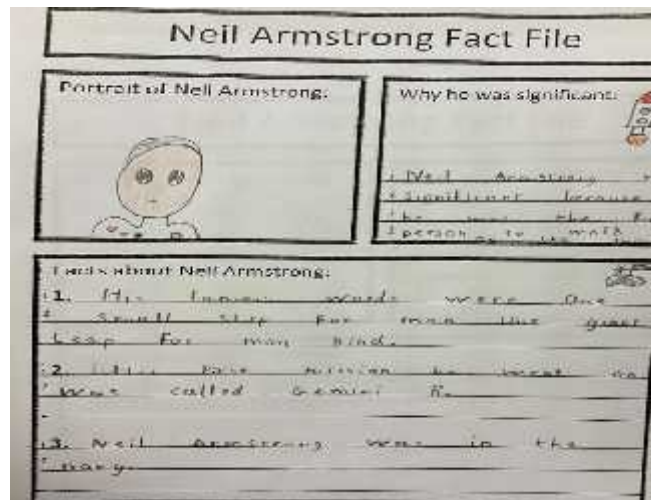 Neil Armstrong Fact File
Portrait of Neil Armstrong:
Why he was significant:
Neil Armstrong
significant because
he was the
person to walk
Facts about Neil Armstrong:
1. His famous words were One
small step for man one giant
Leap for man kind.
2. His first mission he went on
was called Gemini 8.
3. Neil Armstrong was in the
navy.